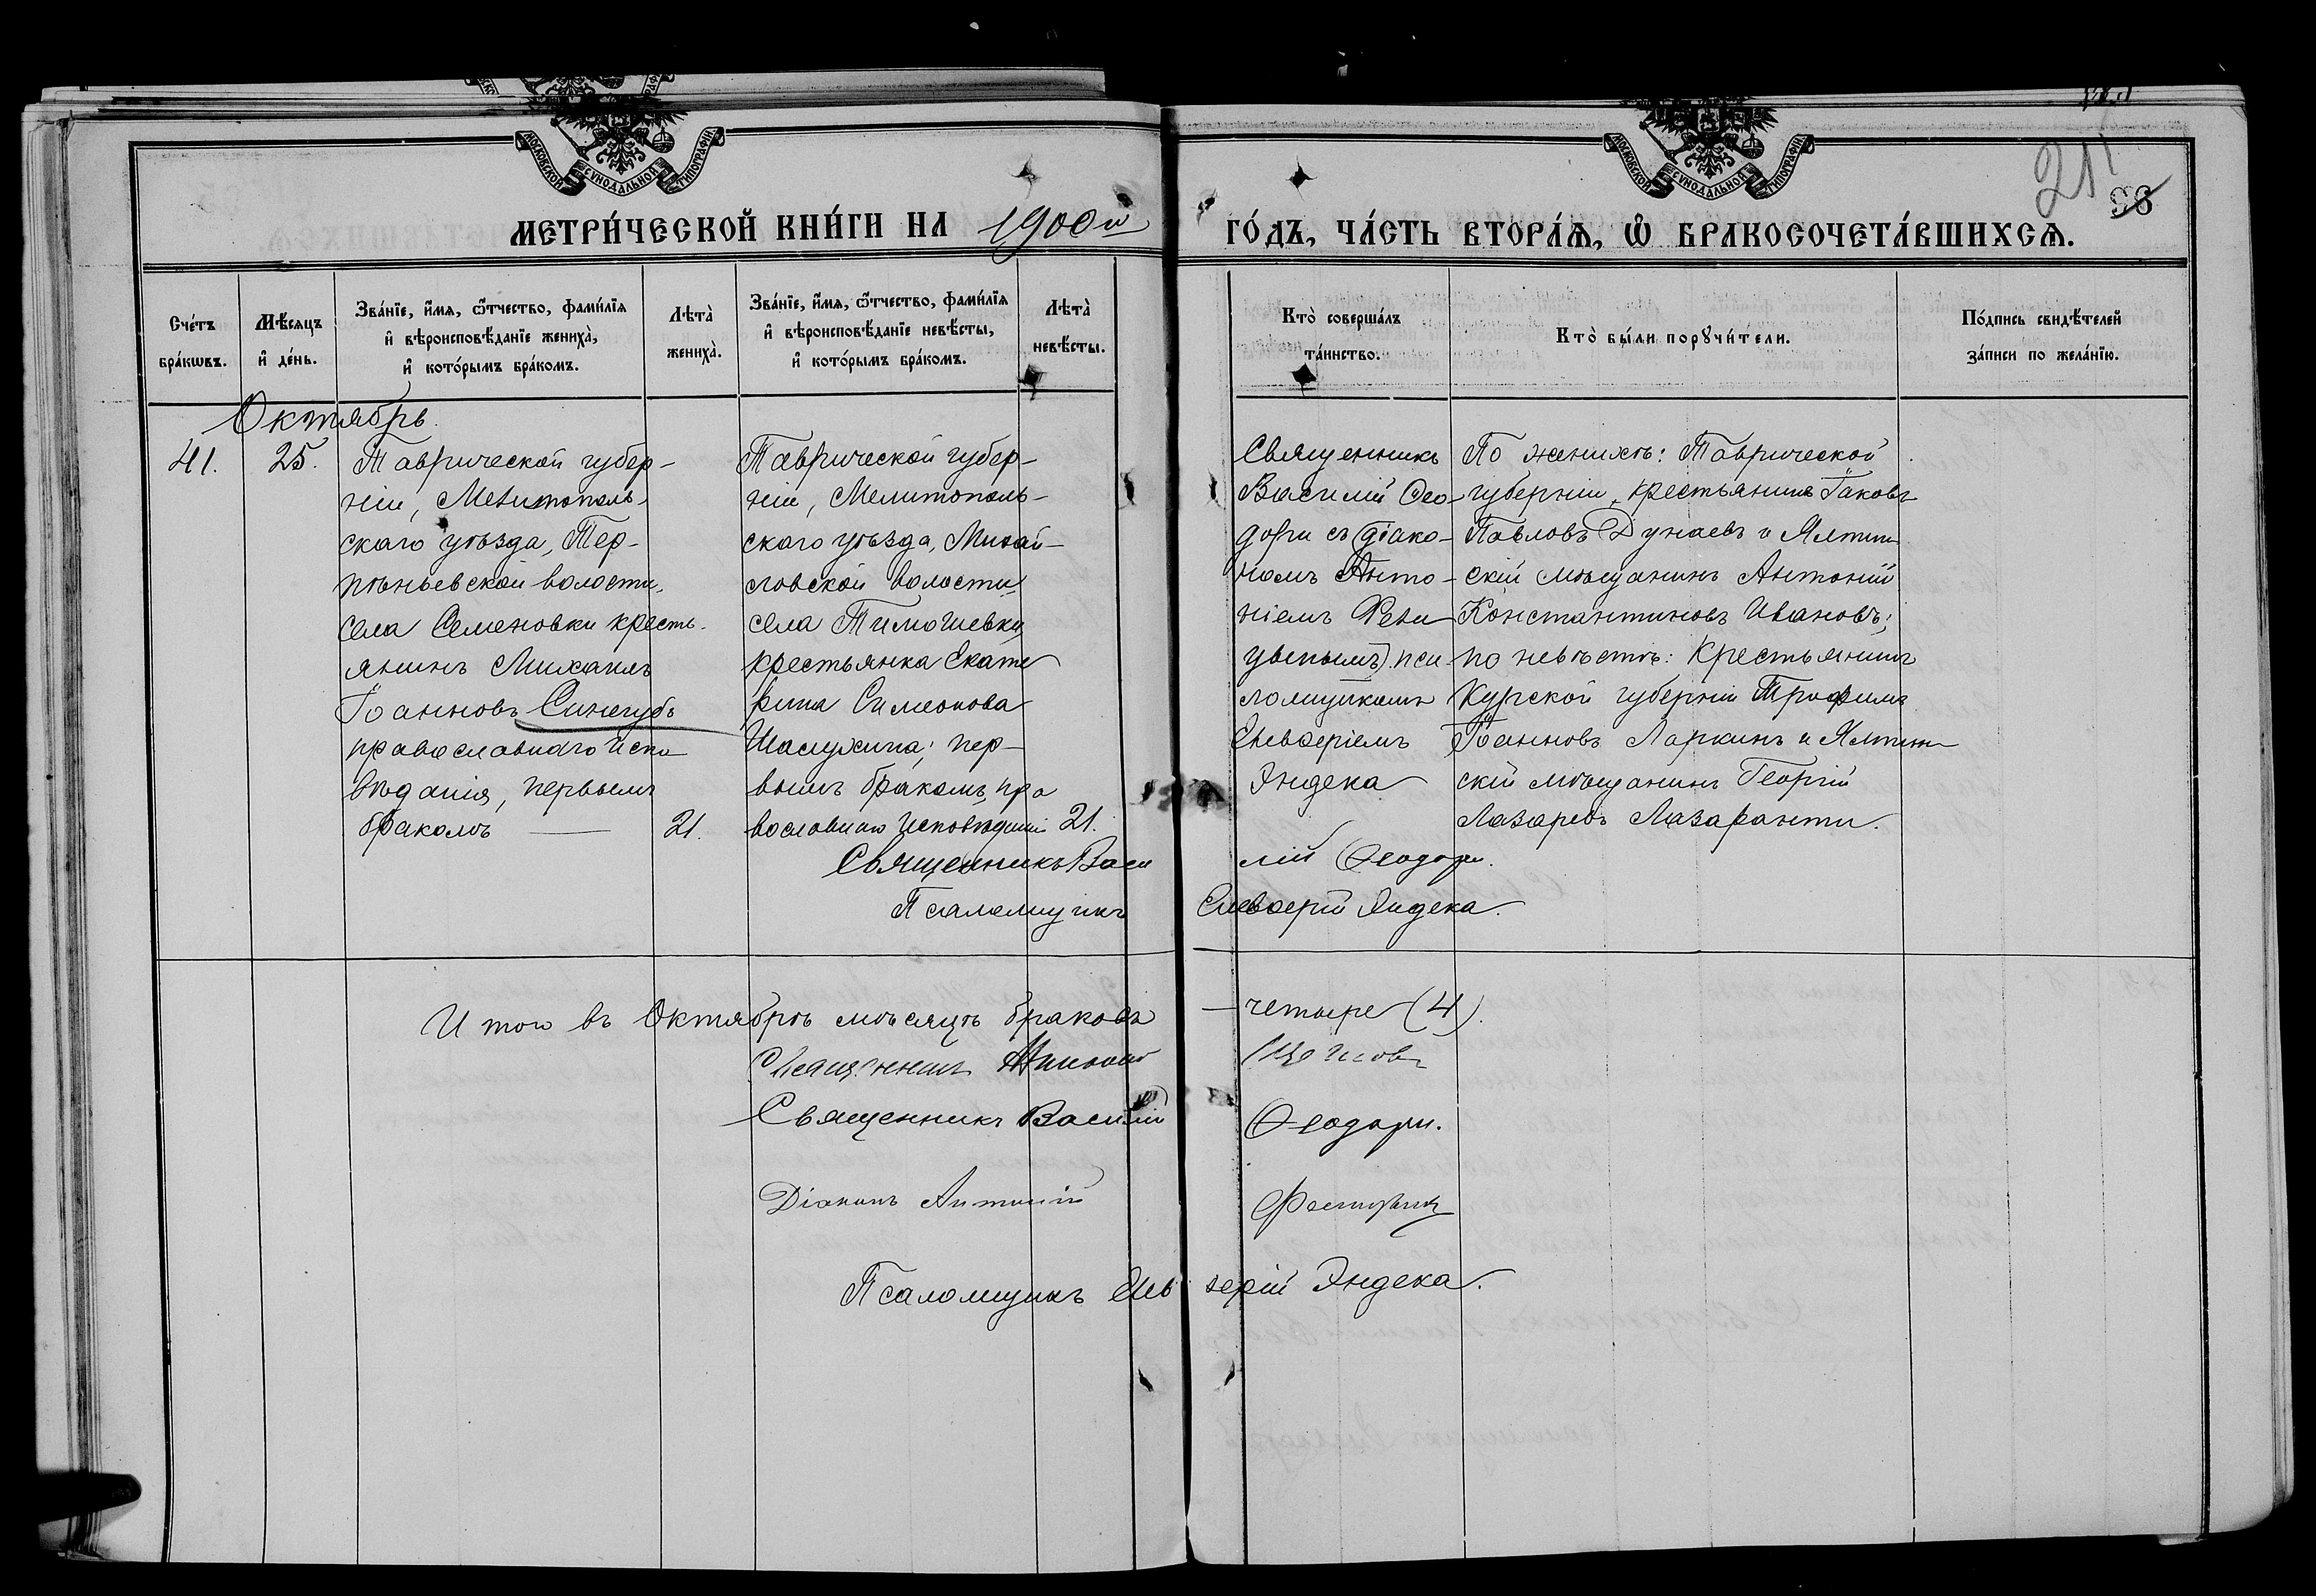 МОСКОВСКОЙ СѴНОДАЛЬНОЙ ТИПОГРАФІИ
МОСКОВСКОЙ СѴНОДАЛЬНОЙ ТИПОГРАФІИ
211
98
МЕТРИ́ЧЕСКОЙ КНИ́ГИ НА 1900й ГО́ДЪ, ЧА́СТЬ ВТОРА́Ѧ, Ѡ҆ БРАКОСОЧЕТА́ВШИХСѦ.
Сче́тъ
бра́кѡвъ.
Мѣ́сяцъ
и҆ де́нь.
Зва́нїе, и҆́мѧ, ѻ҆́тчество, фами́лїѧ
и҆ вѣроисповѣ́данїе жениха̀,
и҆ кото́рымъ бра́комъ.
Лѣта̀
жениха̀.
Зва́нїе, и҆́мѧ, ѻ҆́тчество, фами́лїѧ
и҆ вѣроисповѣ́данїе невѣ́сты,
и҆ кото́рымъ бра́комъ.
Лѣта̀
невѣ́сты.
Кто̀ соверша́лъ
та́инство.
Кто̀ бы́ли порꙋчи́тели.
По́дпись свидѣ́телей
за́писи по жела́нїю.
Октябрь.
41.
25.
Таврической губер-
ніи, Мелитополь-
скаго уѣзда, Тер-
пѣньевской волости,
села Семеновки кресть-
янинъ Михаилъ
Іоанновъ Синегубъ
православнаго испо
вѣданія, первымъ
бракомъ —
21.
Таврической губер-
ніи, Мелитополь-
скаго уѣзда, Михай-
ловской волости,
села Тимошевки,
крестьянка Екате
рина Симеонова
первымъ бракомъ, пра
вославнаго исповѣданія
21.
Священникъ
Василій Ѳео-
дори съ діако-
номъ Анто-
ніемъ
пса
ломщикомъ
Елевѳеріемъ
Яндека
По женихѣ: Таврической
губерніи, крестьянинъ Іаковъ
Павловъ Дунаевъ и Ялтин
скій мѣщанинъ Антоній
Константиновъ Ивановъ;
по невѣстѣ: крестьянинъ
Курской губерніи Трофимъ
Іоанновъ Ларкинъ и Ялтин
скій мѣщанинъ Георгій
Лазаревъ Лазаранти.
Священникъ Василій Ѳеодори.
Псаломщикъ Елевѳерій Яндека.
Итого въ Октябрѣ мѣсяцѣ браковъ — четыре (4).
Священникъ
Священникъ Василій Ѳеодори.
Діаконъ Антоній
Псаломщикъ Елевѳерій Яндека.